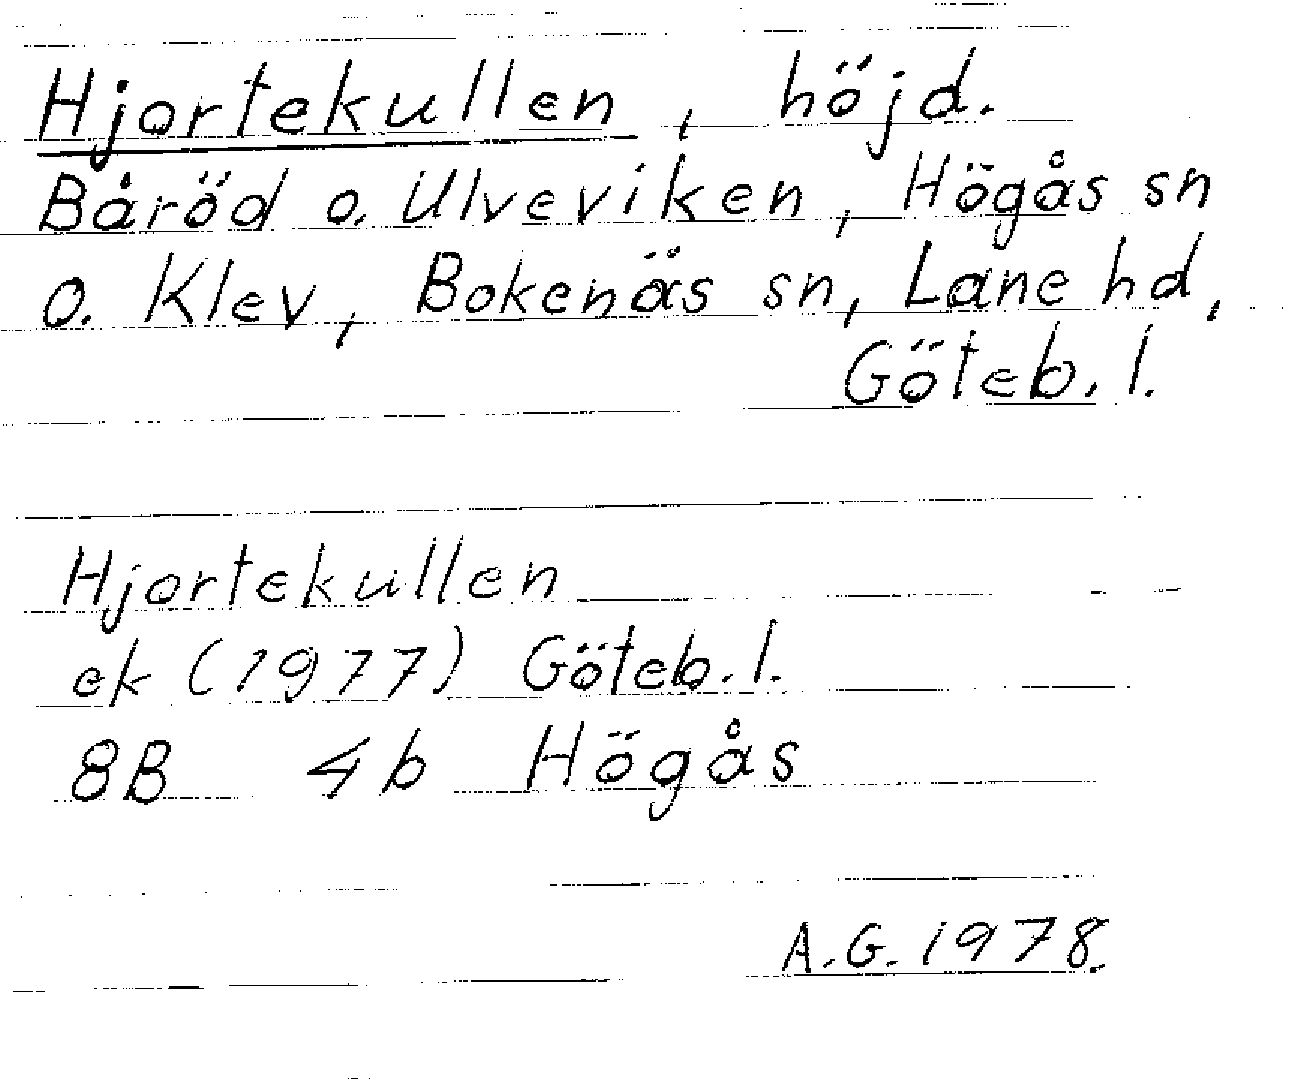 Hjortekullen, höjd.
Båröd o. Ulveviken, Högås sn
o. Klev, Bokenäs sn, Lane hd,
Göteb. l.
Hjortekullen
ek (1977) Göteb. l.
8B 4b Högås
A.G. 1978.